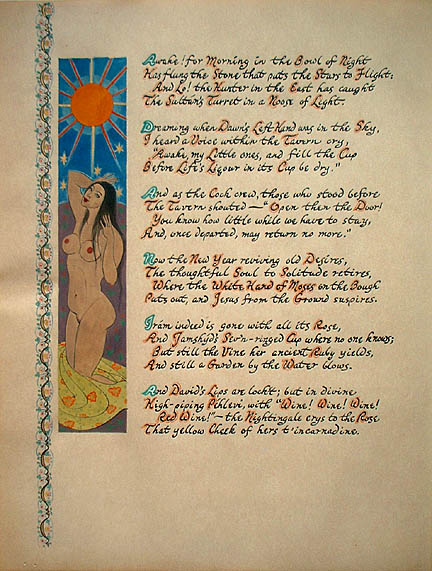 Awake! for Morning in the Bowl of Night
Has flung the Stone that puts the Stars to Flight:
And Lo! the Hunter in the East has caught
The Sultan's Turret in a Noose of Light.
Dreaming when Dawn's Left Hand was in the Sky,
I heard a Voice within the Tavern cry,
"Awake, my Little ones, and fill the Cup
Before Life's Liquor in its Cup be dry."
And as the Cock crew, those who stood before
The Tavern shouted — "Open then the Door!
You know how little while we have to stay,
And, once departed, may return no more."
Now the New Year reviving old Desires,
The thoughtful Soul to Solitude retires,
Where the White Hand of Moses on the Bough
Puts out, and Jesus from the Ground suspires.
Irám indeed is gone with all its Rose,
And Jamshýd's Sev'n-ringed Cup where no one knows;
But still the Vine her ancient Ruby yields,
And still a Garden by the Water blows.
And David's Lips are lockt; but in divine
High-piping Péhlevi, with "Wine! Wine! Wine!
Red Wine!" — the Nightingale crys to the Rose
That yellow Cheek of hers t'incarnadine.